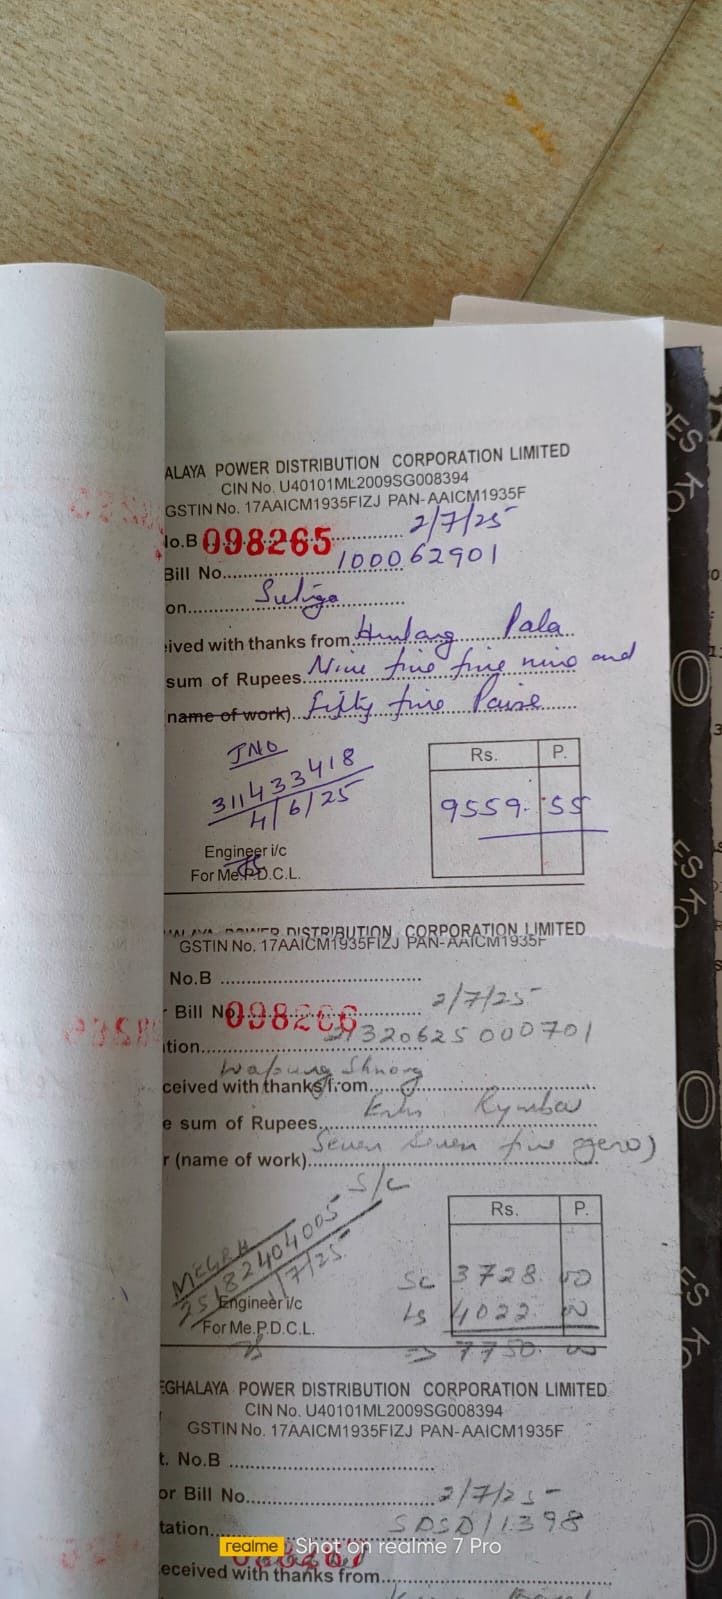 ALAYA POWER DISTRIBUTION CORPORATION LIMITED
CIN No. U40101ML2009SG008394
GSTIN No. 17AAICM1935FIZJ PAN-AAICM1935F
No.B 098265 2/7/25
Bill No. 100062901
on. Sutnga
ived with thanks from Pala
sum of Rupees. Nine five five nine and
(name of work). Fifty five Paise
311433418
4/6/25
Rs. P.
9559. 55
Engineer i/c
For Me.P.D.C.L.
HALAYA POWER DISTRIBUTION CORPORATION LIMITED
GSTIN No. 17AAICM1935FIZJ PAN-AAICM1935F
No.B
2/7/25
Bill No. 098266
21320625000701
tion.
Wapung Shnong
ceived with thanks from
Rymbai
e sum of Rupees.
Seven seven five zero)
r (name of work).
S/C
Rs. P.
25182404005
1/7/25
SC 3728. 00
LS 4022. 00
Engineer i/c
For Me.P.D.C.L.
=> 7750. 00
EGHALAYA POWER DISTRIBUTION CORPORATION LIMITED
CIN No. U40101ML2009SG008394
GSTIN No. 17AAICM1935FIZJ PAN-AAICM1935F
t. No.B
2/7/25
or Bill No.
SDSD/1398
tation.
098267
eceived with thanks from
realme Shot on realme 7 Pro